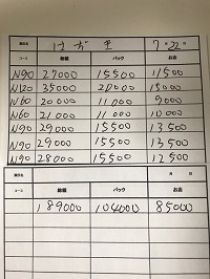 7月22日
コース 総額 バック お店
N90 27000 15500 11500
N120 35000 20000 15000
N60 20000 11000 9000
N60 21000 11000 10000
N90 29000 15500 13500
N90 29000 15500 13500
N90 28000 15500 12500
月 日
コース 総額 バック お店
189000 104000 85000